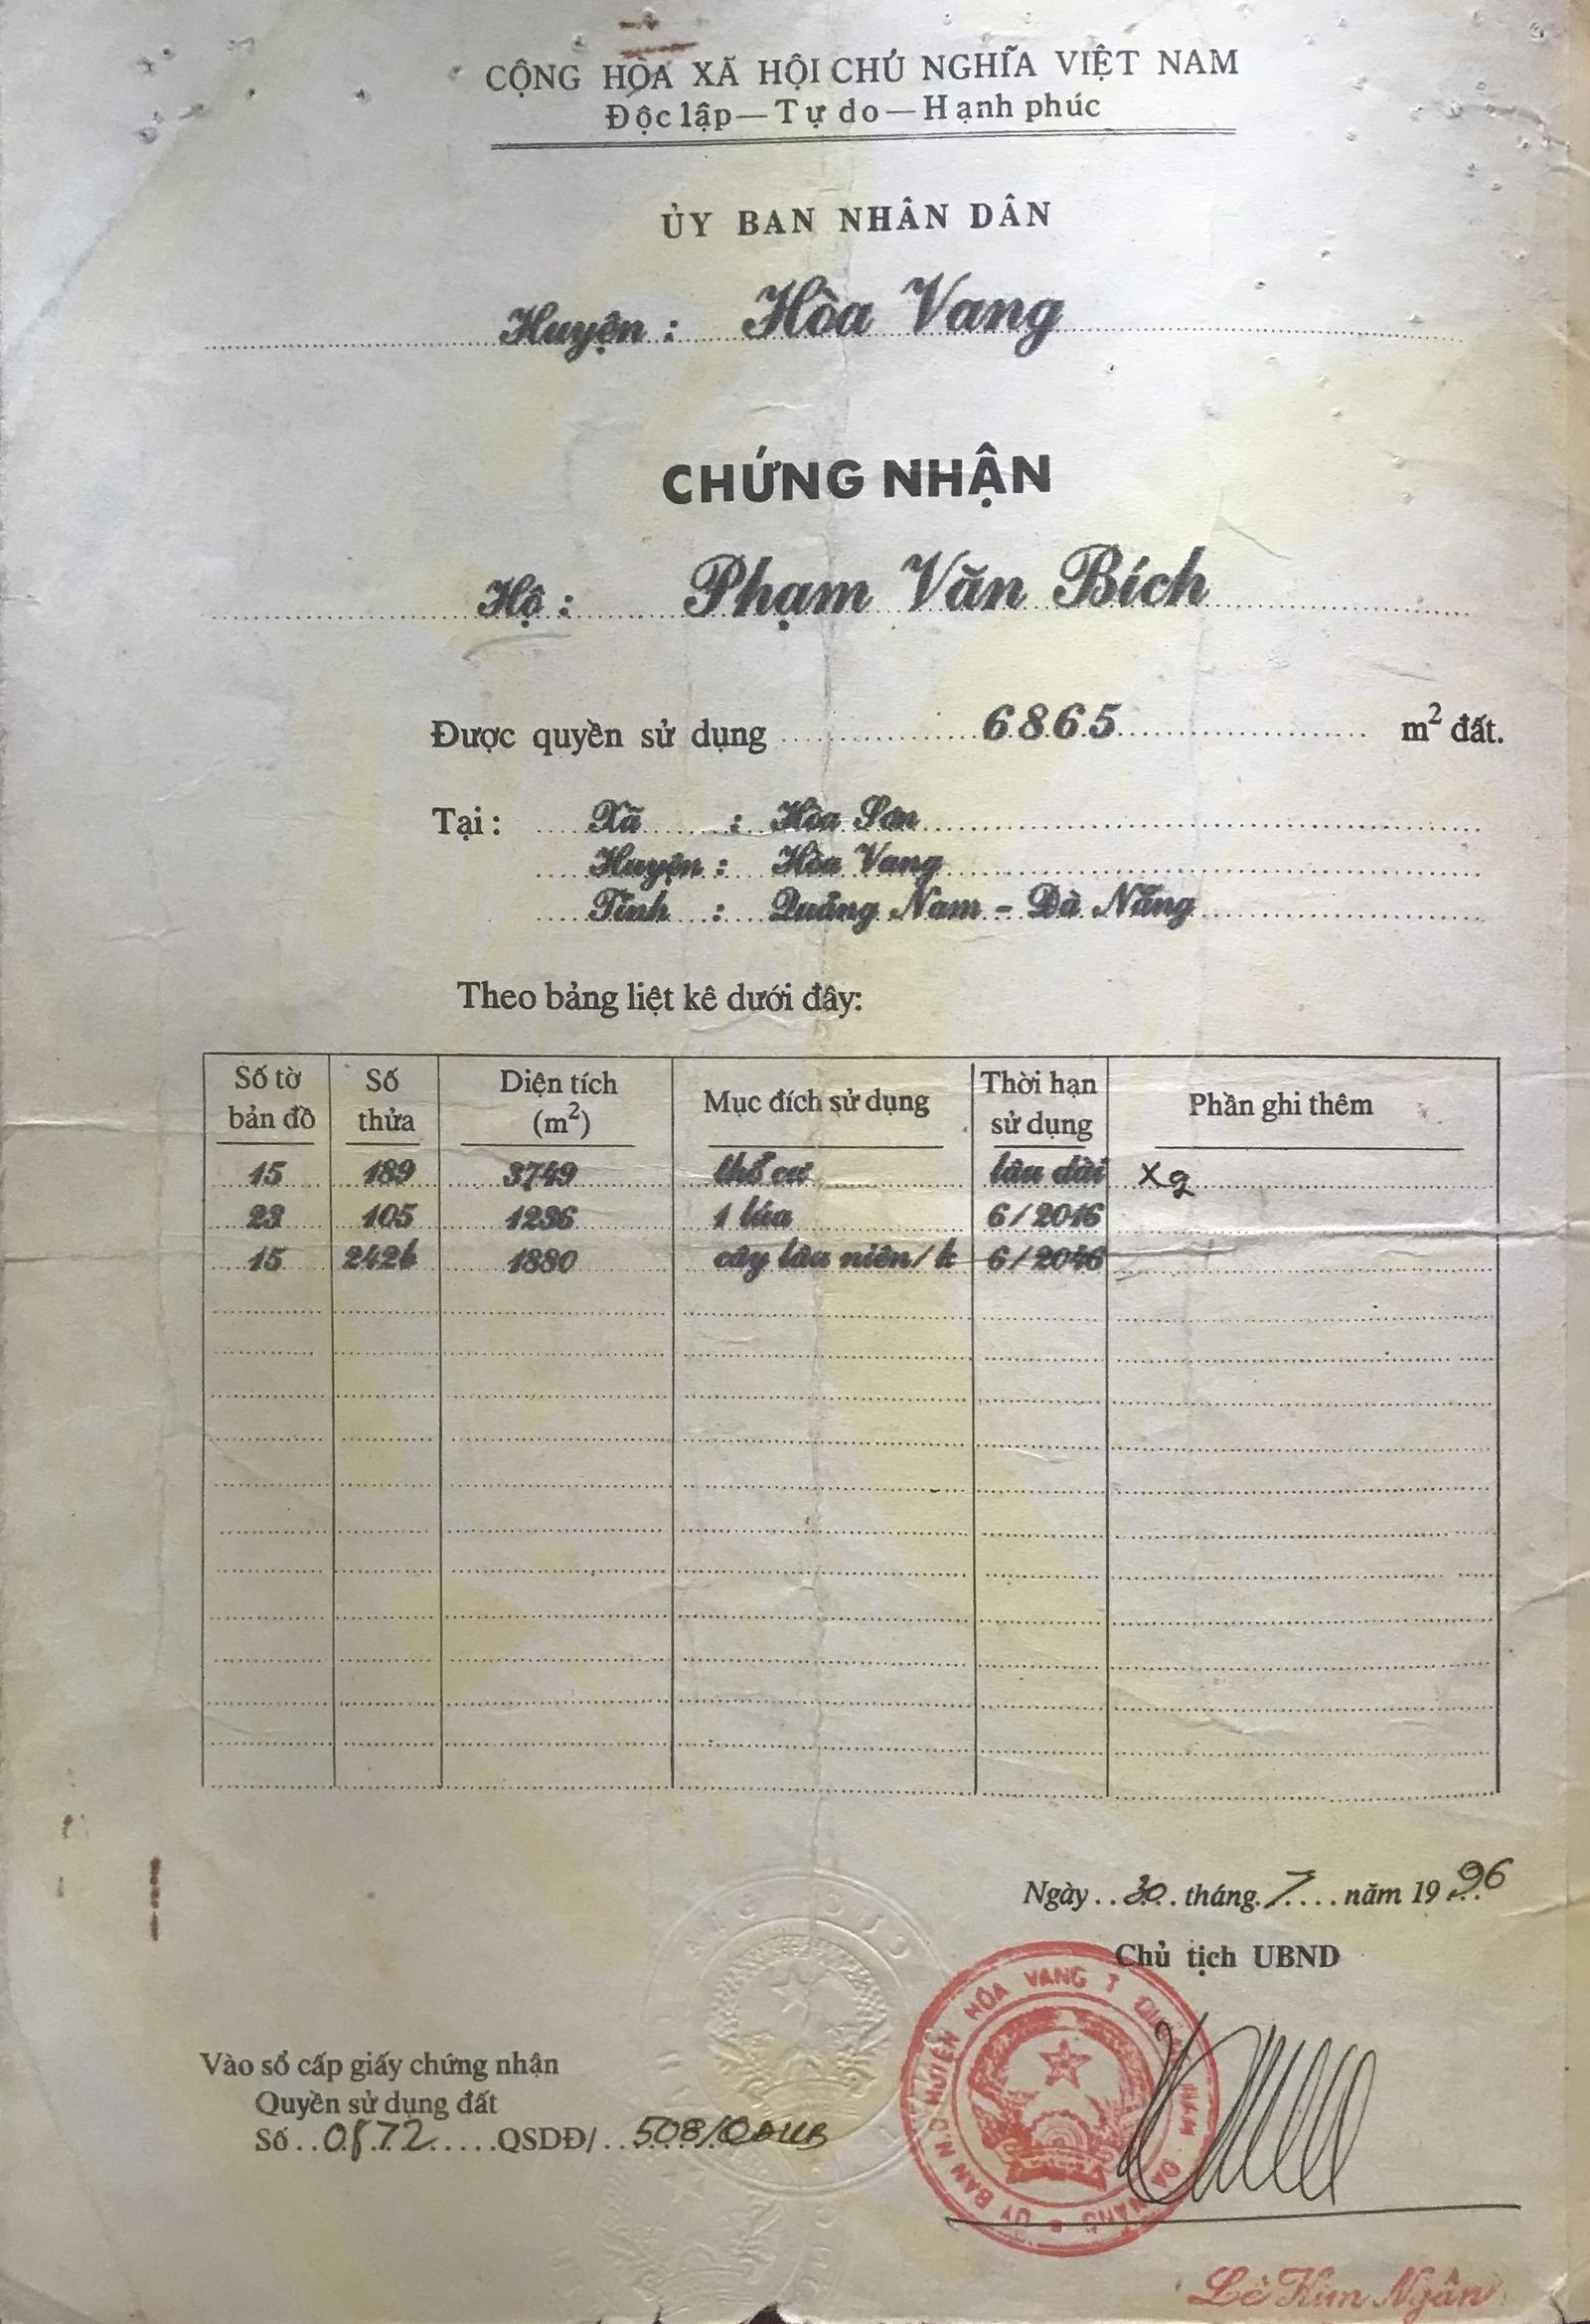 CỘNG HÒA XÃ HỘI CHỦ NGHĨA VIỆT NAM
Độc lập—Tự do—Hạnh phúc
ỦY BAN NHÂN DÂN
Huyện: Hòa Vang
CHỨNG NHẬN
Hộ: Phạm Văn Bích
Được quyền sử dụng 6865 m² đất.
Tại: Xã : Hòa Sơn
Huyện: Hòa Vang
Tỉnh : Quảng Nam - Đà Nẵng
Theo bảng liệt kê dưới đây:
Số tờ bản đồ Số thửa Diện tích (m²) Mục đích sử dụng Thời hạn sử dụng Phần ghi thêm
15 189 3749 thổ cư lâu dài
23 105 1236 1 lúa 6/2016
15 1880 cây lâu niên/k 6/2046
Ngày 30 tháng 7 năm 1996
Chủ tịch UBND
ỦY BAN N.D HUYỆN HÒA VANG T QUẢNG NAM ĐÀ NẴNG
Vào sổ cấp giấy chứng nhận
Quyền sử dụng đất
Số QSDĐ/ 508/QĐUB
Lê Kim Ngân